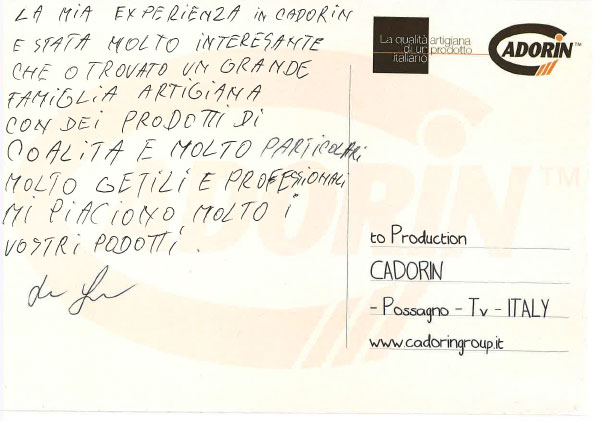 LA MIA EXPERIENZA in CADORIN
E STATA MOLTO INTERESANTE
CHE O TROVATO UN GRANDE
FAMIGLIA ARTIGIANA
CON DEI PRODOTTI DI
COALITA E MOLTO PARTICOLARI
MOLTO GETILI E PROFESSIONALI
MI PIACIONO MOLTO I
VOSTRI PODOTTI.
La qualità artigiana
di un prodotto
italiano
CADORIN™
CADORIN™
to Production
CADORIN
- Possagno - Tv - ITALY
www.cadoringroup.it